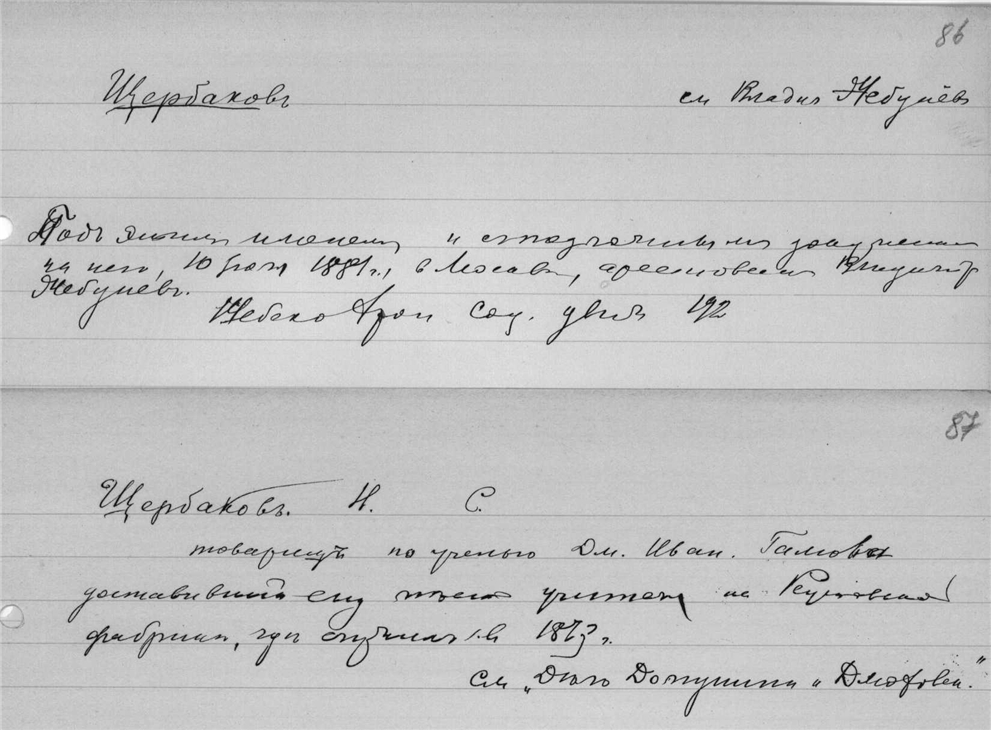 86
Щербаковъ см Владим Жебунёвъ
Подъ этимъ именемъ и съ подложнымъ документ
на него, 10 1881 г., в Москвѣ, арестованъ Владимір
Жебуневъ.
Арон Соц. движ 192
87
Щербаковъ. Н. С.
товарищъ по ученью Дм. Иван. Гамова
доставившій ему мѣсто учителя на Реутовской
фабрикѣ, гдѣ служилъ въ 1873 г.
см „Дѣло Долгушина и Дмоховск."